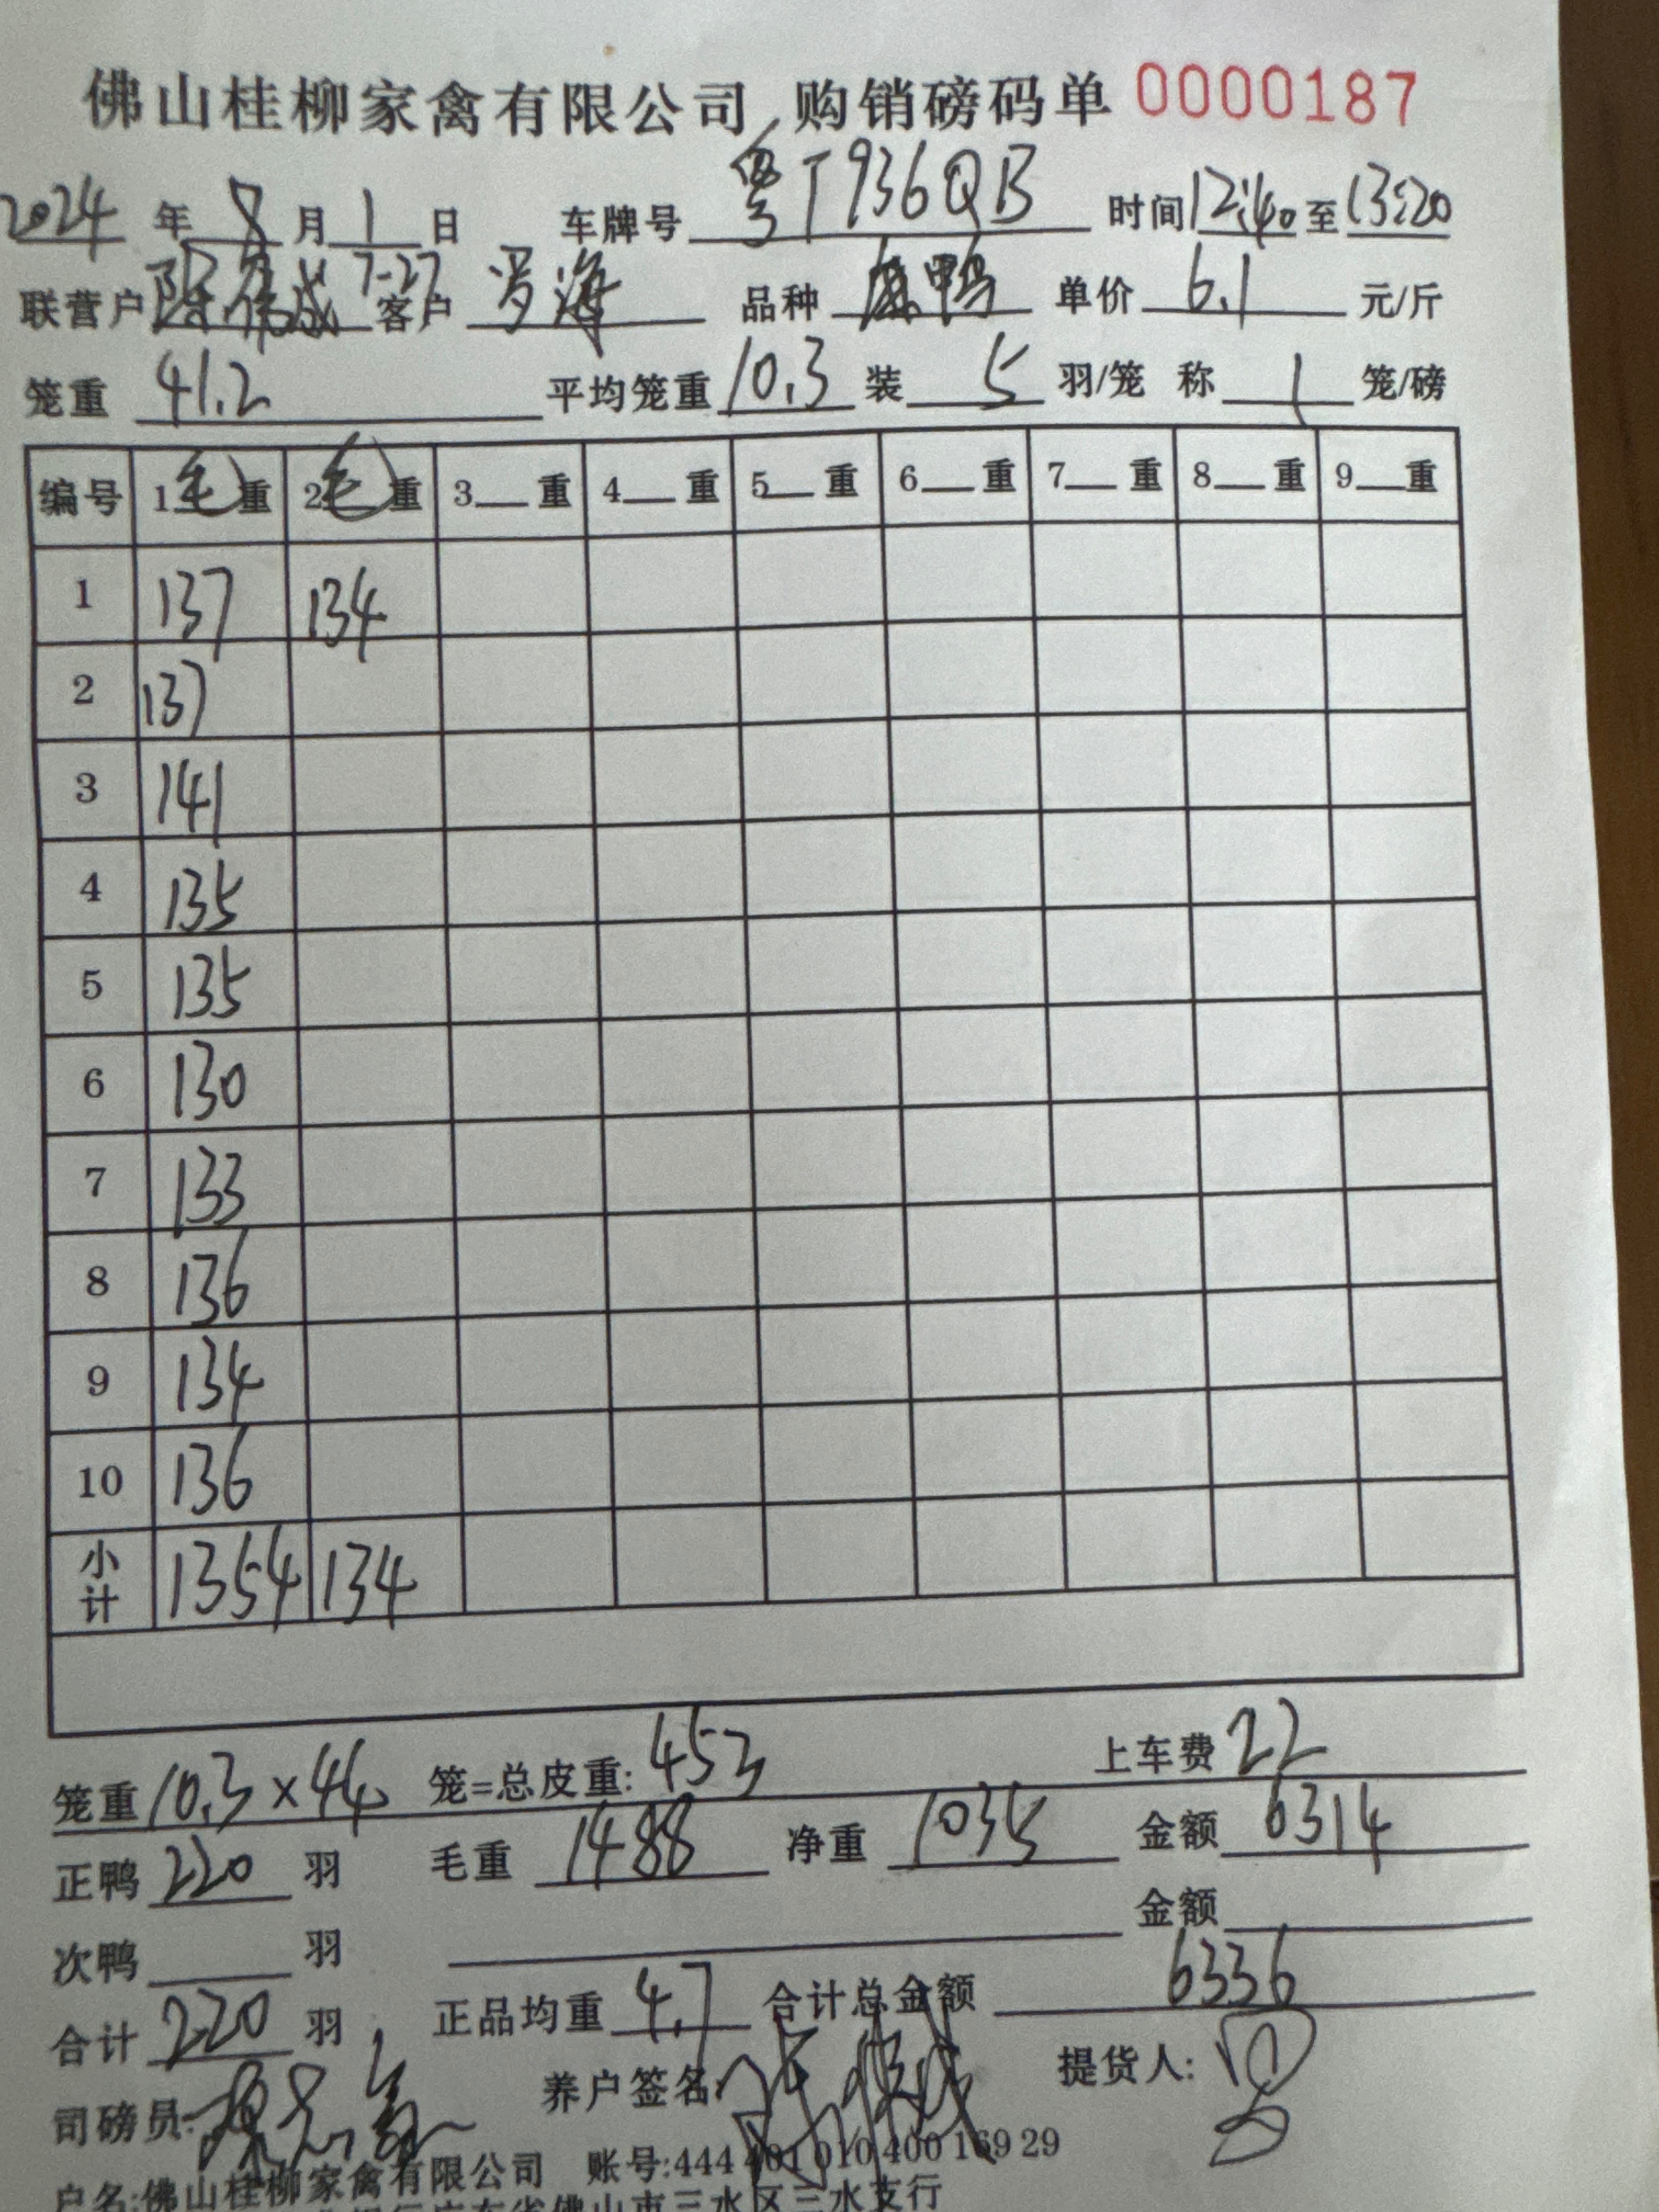 佛山桂柳家禽有限公司 购销磅码单 0000187
2024 年 8 月 1 日 车牌号 粤T936QB 时间 12:40 至 13:20
联营户 陈伟成 7-27 客户 罗海 品种 麻鸭 单价 6.1 元/斤
笼重 41.2 平均笼重 10.3 装 5 羽/笼 称 1 笼/磅
编号 1 毛 重 2 毛 重 3 重 4 重 5 重 6 重 7 重 8 重 9 重
1 137 134
2 137
3 141
4 135
5 135
6 130
7 133
8 136
9 134
10 136
小计 1354 134
笼重 10.3×44 笼=总皮重: 453 上车费 22
正鸭 220 羽 毛重 1488 净重 1035 金额 6314
次鸭 羽 金额
合计 220 羽 正品均重 4.7 合计总金额 6336
司磅员: 养户签名: 提货人:
户名:佛山桂柳家禽有限公司 账号:444 401 010 400 169 29
佛山市三水区三水支行